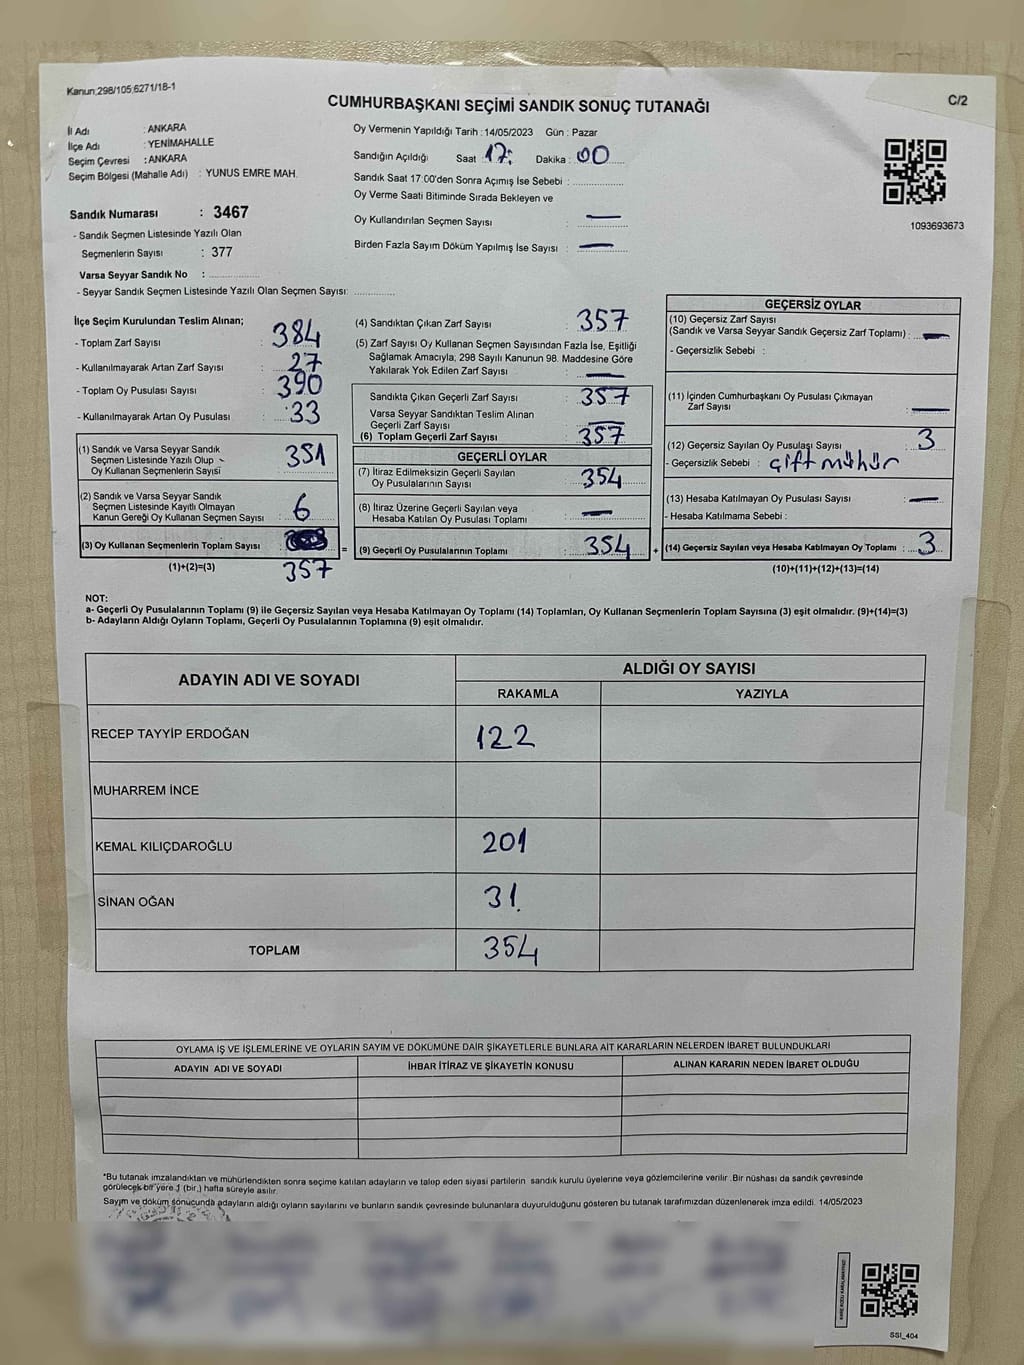 Kanun;298/105,6271/18-1
CUMHURBAŞKANI SEÇİMİ SANDIK SONUÇ TUTANAĞI
C/2
İl Adı : ANKARA
İlçe Adı : YENİMAHALLE
Seçim Çevresi : ANKARA
Seçim Bölgesi (Mahalle Adı) : YUNUS EMRE MAH.
Oy Vermenin Yapıldığı Tarih : 14/05/2023 Gün : Pazar
Sandığın Açıldığı Saat : 17: Dakika : 00
Sandık Saat 17:00'den Sonra Açımış İse Sebebi :
Oy Verme Saati Bitiminde Sırada Bekleyen ve
Oy Kullandırılan Seçmen Sayısı : —
Birden Fazla Sayım Döküm Yapılmış İse Sayısı : —
1093693673
Sandık Numarası : 3467
- Sandık Seçmen Listesinde Yazılı Olan
Seçmenlerin Sayısı : 377
Varsa Seyyar Sandık No :
- Seyyar Sandık Seçmen Listesinde Yazılı Olan Seçmen Sayısı:
İlçe Seçim Kurulundan Teslim Alınan;
- Toplam Zarf Sayısı : 384
- Kullanılmayarak Artan Zarf Sayısı : 27
- Toplam Oy Pusulası Sayısı : 390
- Kullanılmayarak Artan Oy Pusulası : 33
(1) Sandık ve Varsa Seyyar Sandık
Seçmen Listesinde Yazılı Olup
Oy Kullanan Seçmenlerin Sayısı 351
(2) Sandık ve Varsa Seyyar Sandık
Seçmen Listesinde Kayıtlı Olmayan
Kanun Gereği Oy Kullanan Seçmen Sayısı : 6
(3) Oy Kullanan Seçmenlerin Toplam Sayısı :
(1)+(2)=(3) 357
(4) Sandıktan Çıkan Zarf Sayısı : 357
(5) Zarf Sayısı Oy Kullanan Seçmen Sayısından Fazla İse, Eşitliği
Sağlamak Amacıyla, 298 Sayılı Kanunun 98. Maddesine Göre
Yakılarak Yok Edilen Zarf Sayısı : —
Sandıkta Çıkan Geçerli Zarf Sayısı : 357
Varsa Seyyar Sandıktan Teslim Alınan
Geçerli Zarf Sayısı : —
(6) Toplam Geçerli Zarf Sayısı : 357
GEÇERLİ OYLAR
(7) İtiraz Edilmeksizin Geçerli Sayılan
Oy Pusulalarının Sayısı : 354
(8) İtiraz Üzerine Geçerli Sayılan veya
Hesaba Katılan Oy Pusulası Toplamı : —
= (9) Geçerli Oy Pusulalarının Toplamı : 354
GEÇERSİZ OYLAR
(10) Geçersiz Zarf Sayısı
(Sandık ve Varsa Seyyar Sandık Geçersiz Zarf Toplamı) : —
- Geçersizlik Sebebi :
(11) İçinden Cumhurbaşkanı Oy Pusulası Çıkmayan
Zarf Sayısı : —
(12) Geçersiz Sayılan Oy Pusulası Sayısı : 3
- Geçersizlik Sebebi : çift mühür
(13) Hesaba Katılmayan Oy Pusulası Sayısı : —
- Hesaba Katılmama Sebebi :
+ (14) Geçersiz Sayılan veya Hesaba Katılmayan Oy Toplamı : 3
(10)+(11)+(12)+(13)=(14)
NOT:
a- Geçerli Oy Pusulalarının Toplamı (9) ile Geçersiz Sayılan veya Hesaba Katılmayan Oy Toplamı (14) Toplamları, Oy Kullanan Seçmenlerin Toplam Sayısına (3) eşit olmalıdır. (9)+(14)=(3)
b- Adayların Aldığı Oyların Toplamı, Geçerli Oy Pusulalarının Toplamına (9) eşit olmalıdır.
ADAYIN ADI VE SOYADI
ALDIĞI OY SAYISI
RAKAMLA YAZIYLA
RECEP TAYYİP ERDOĞAN 122
MUHARREM İNCE
KEMAL KILIÇDAROĞLU 201
SİNAN OĞAN 31
TOPLAM 354
OYLAMA İŞ VE İŞLEMLERİNE VE OYLARIN SAYIM VE DÖKÜMÜNE DAİR ŞİKAYETLERLE BUNLARA AİT KARARLARIN NELERDEN İBARET BULUNDUKLARI
ADAYIN ADI VE SOYADI İHBAR İTİRAZ VE ŞİKAYETİN KONUSU ALINAN KARARIN NEDEN İBARET OLDUĞU
*Bu tutanak imzalandıktan ve mühürlendikten sonra seçime katılan adayların ve talep eden siyasi partilerin sandık kurulu üyelerine veya gözlemcilerine verilir .Bir nüshası da sandık çevresinde
görülecek bir yere 1 (bir,) hafta süreyle asılır.
Sayım ve döküm sonucunda adayların aldığı oyların sayılarını ve bunların sandık çevresinde bulunanlara duyurulduğunu gösteren bu tutanak tarafımızdan düzenlenerek imza edildi. 14/05/2023
SSI_404